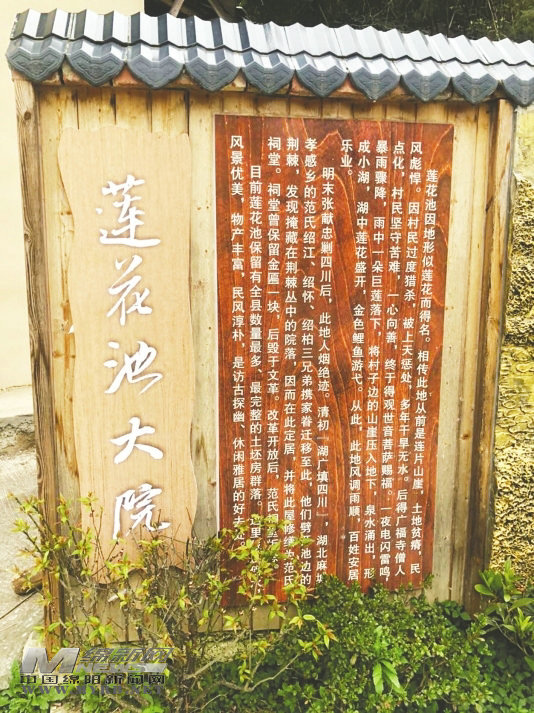 莲花池大院
莲花池因地形似莲花而得名。相传此地从前是连片山崖，土地贫瘠，民
风彪悍。因村民过度猎杀，被上天惩处，多年干旱无水。后得广福寺僧人
点化，村民坚守苦难，一心向善，终于得观世音菩萨赐福。一夜电闪雷鸣，
暴雨骤降，雨中一朵巨莲落下，将村子边的山崖压入地下，泉水涌出，形
成小湖，湖中莲花盛开，金色鲤鱼游弋。从此，此地风调雨顺，百姓安居
乐业。
明末张献忠剿四川后，此地人烟绝迹。清初“湖广填四川”，湖北麻城
孝感乡的范氏绍江、绍怀、绍柏三兄弟携家眷迁移至此，他们劈开池边的
荆棘，发现掩藏在荆棘丛中的院落，因而在此定居，并将此屋修缮为范氏
祠堂。祠堂曾保留金匾一块，后毁于文革。改革开放后，范氏
目前莲花池保留有全县数量最多、最完整的土坯房群落。这里
风景优美，物产丰富，民风淳朴，是访古探幽、休闲雅居的好去处
绵阳新闻网
中国绵阳新闻网